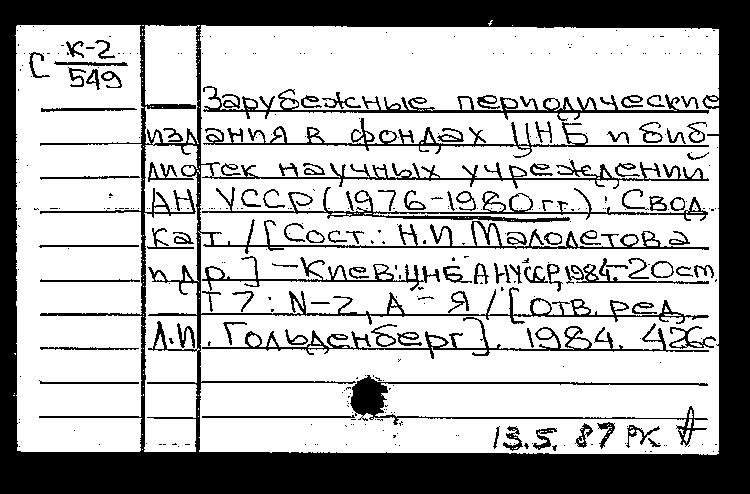 С К-2
549
Зарубежные периодические
издания в фондах ЦНБ и биб-
лиотек научных учреждений
АН УССР (1976-1980 гг.): Свод.
кат. / [Сост.: Н.И. Малолетова
и др.] — Киев: ЦНБ АН УССР, 1984.-20 ст.
Т 7: N-Z, А-Я / [Отв. ред.
Л.И. Гольденберг]. 1984. 426с
13.5. 87 РК